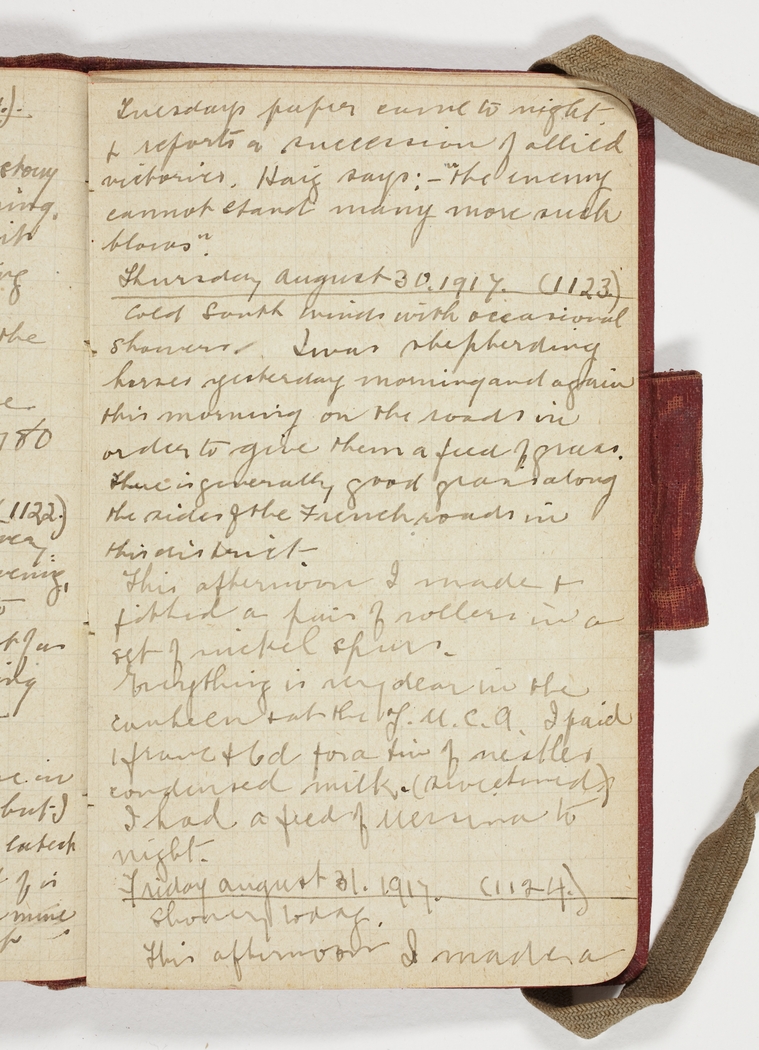 Tuesdays paper came to night.
& reports a succession of allied
victories. Haig says:- "the enemy
cannot stand many more such
blows"
Thursday August 30. 1917. (1123)
Cold South winds with occasional
showers. I was shepherding
horses yesterday morning and again
this morning on the roads in
order to give them a feed of grass.
There is generally good grass along
the sides of the French roads in
this district
This afternoon I made &
fitted a pair of rollers in a
set of nickel spurs.
Everything is very dear in the
canteen & at the Y.M.C.A. I paid
1 franc & 6d for a tin of nestles
condensed milk. (sweetened)
I had a feed of to
night.
Friday August 31. 1917. (1124.)
Showery today.
This afternoon I made a
).
ing.
the
780
(1122)
ing
but I
mine